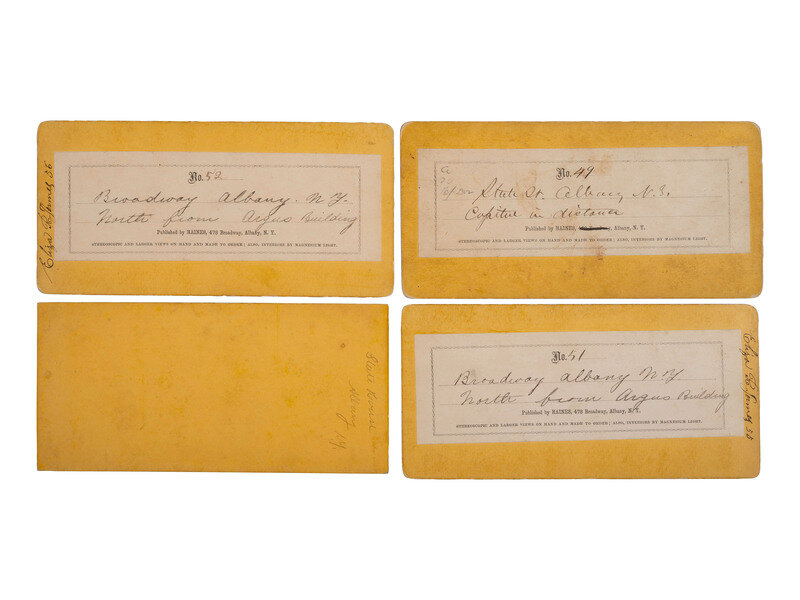 No. 52
Broadway Albany. N.Y.
North from Argus Building
Published by HAINES, 478 Broadway, Albany, N. Y.
STEREOSCOPIC AND LARGER VIEWS ON HAND AND MADE TO ORDER; ALSO, INTERIORS BY MAGNESIUM LIGHT.
No. 49
State St. Albany N.Y.
Capitol in distance
Published by HAINES, Broadway, Albany, N. Y.
STEREOSCOPIC AND LARGER VIEWS ON HAND AND MADE TO ORDER; ALSO, INTERIORS BY MAGNESIUM LIGHT.
State House
Albany
N.Y.
No. 51
Broadway Albany N.Y.
North from Argus Building
Published by HAINES, 478 Broadway, Albany, N. Y.
STEREOSCOPIC AND LARGER VIEWS ON HAND AND MADE TO ORDER; ALSO, INTERIORS BY MAGNESIUM LIGHT.